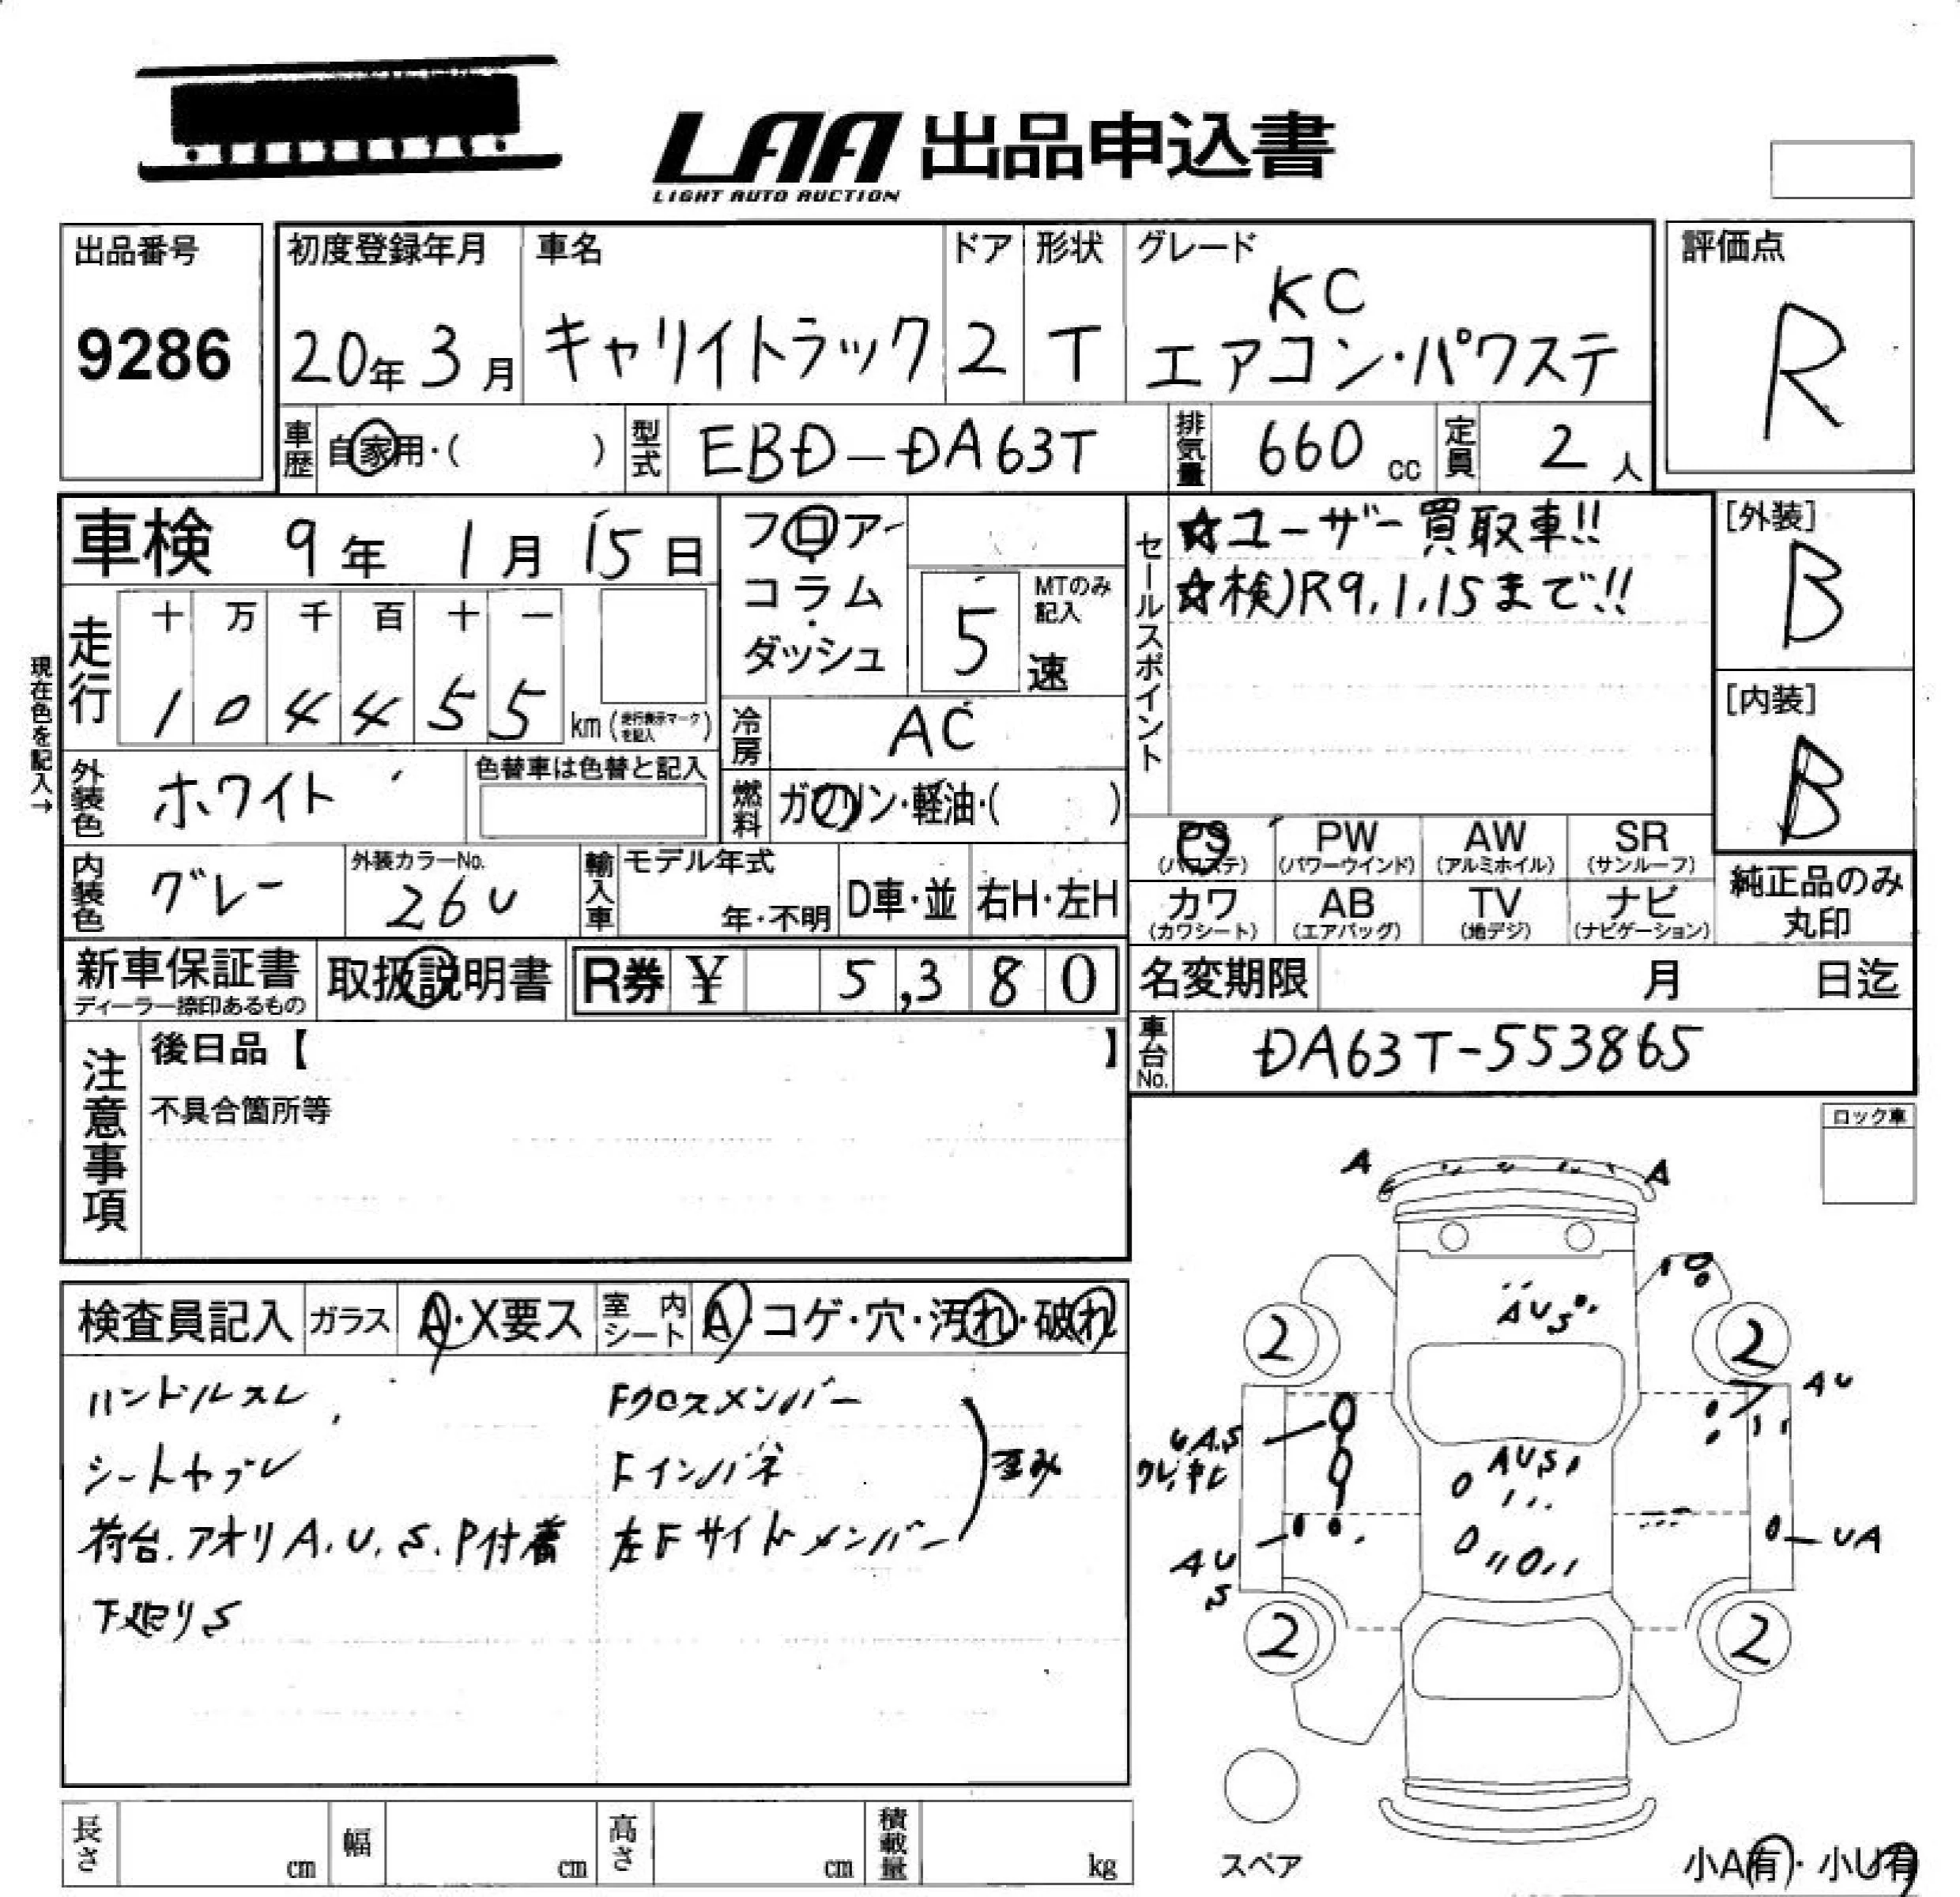 LAA 出品申込書
LIGHT AUTO AUCTION
出品番号
9286
初度登録年月
20年 3月
車名
キャリイトラック
ドア
2
形状
T
グレード
KC
エアコン・パワステ
評価点
R
車歴
自家用・( )
型式
EBD-DA63T
排気量
660 cc
定員
2 人
車検 9年 1月 15日
フロア
コラム
ダッシュ
5
MTのみ記入
速
セールスポイント
☆ユーザー買取車!!
☆検)R9.1.15まで!!
[外装]
B
[内装]
B
現在色を記入→
走行
十 万 千 百 十 一
1 0 4 4 5 5
km (走行表示マークを記入)
冷房
AC
外装色
ホワイト
色替車は色替と記入
燃料
ガソリン・軽油・( )
内装色
グレー
外装カラーNo.
26U
輸入車
モデル年式
年・不明
D車・並
右H・左H
PS (パワステ)
PW (パワーウインド)
AW (アルミホイル)
SR (サンルーフ)
カワ (カワシート)
AB (エアバッグ)
TV (地デジ)
ナビ (ナビゲーション)
純正品のみ
丸印
新車保証書
ディーラー捺印あるもの
取扱説明書
R券 ¥ 5,380
名変期限
月 日迄
車台No.
DA63T-553865
注意事項
後日品【 】
不具合箇所等
ロック車
検査員記入
ガラス
A・X要ス
室内シート
A・コゲ・穴・汚れ・破れ
ハンドルスレ
シートヤブレ
荷台.アオリA.U.S.P付着
下廻りS
Fクロスメンバー
Fインパネ
左Fサイドメンバー
歪み
A
A
AUS
2
2
AU
U.A.S
AUS
AU
S
UA
2
2
スペア
小A有・小U有
長さ
cm
幅
cm
高さ
cm
積載量
kg